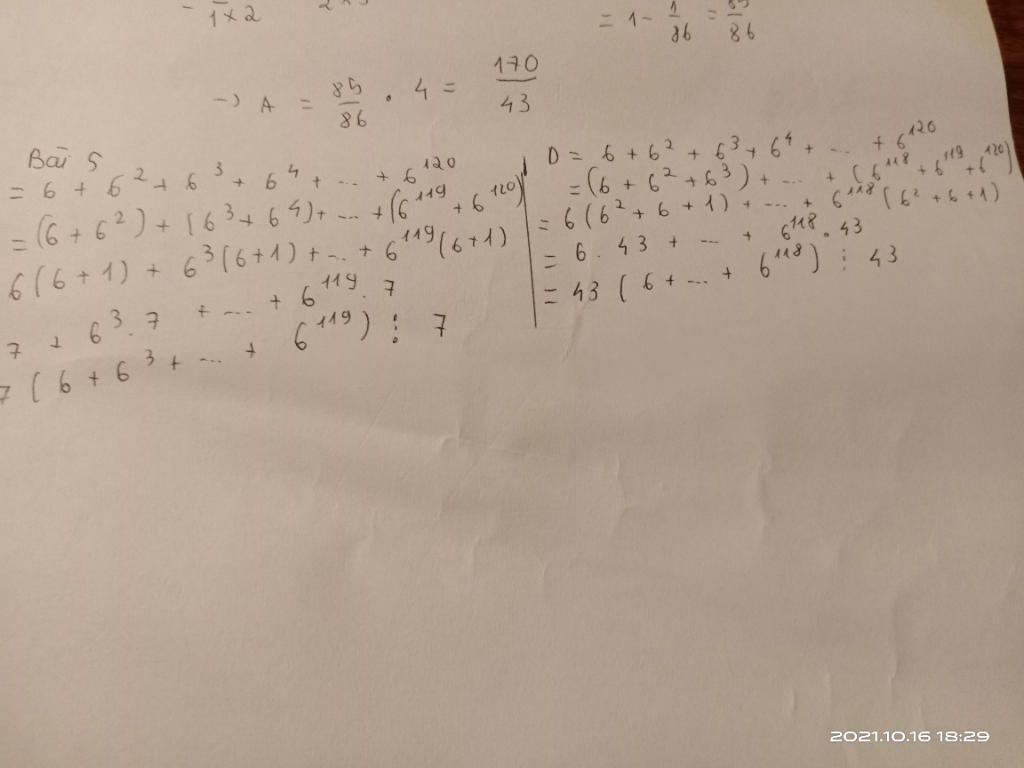 1 × 2
= 1 - 1/86 = 85/86
→ A = 85/86 . 4 = 170/43
Bài 5
= 6 + 6² + 6³ + 6⁴ + ... + 6¹²⁰
= (6 + 6²) + (6³ + 6⁴) + ... + (6¹¹⁹ + 6¹²⁰)
6(6 + 1) + 6³(6+1) + ... + 6¹¹⁹(6+1)
7 + 6³.7 + ... + 6¹¹⁹.7
7 (6 + 6³ + ... + 6¹¹⁹) ⋮ 7
D = 6 + 6² + 6³ + 6⁴ + ... + 6¹²⁰
= (6 + 6² + 6³) + ... + (6¹¹⁸ + 6¹¹⁹ + 6¹²⁰)
= 6(6² + 6 + 1) + ... + 6¹¹⁸(6² + 6 + 1)
= 6. 43 + ... + 6¹¹⁸.43
= 43 (6 + ... + 6¹¹⁸) ⋮ 43
2021.10.16 18:29